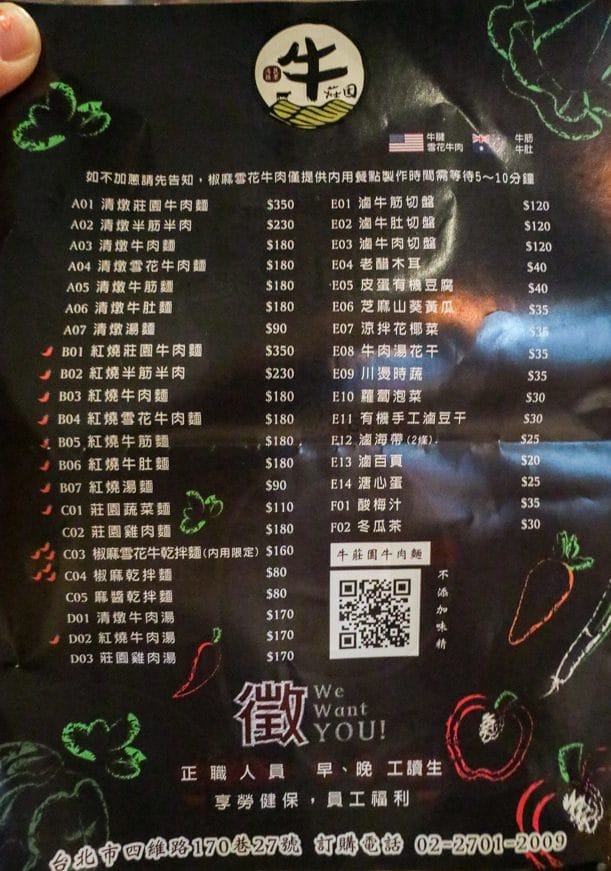 牛
莊園
牛腱
雪花牛肉
牛筋
牛肚
如不加蔥請先告知，椒麻雪花牛肉僅提供內用餐點製作時間需等待5～10分鐘
A01 清燉莊園牛肉麵 $350
A02 清燉半筋半肉 $230
A03 清燉牛肉麵 $180
A04 清燉雪花牛肉麵 $180
A05 清燉牛筋麵 $180
A06 清燉牛肚麵 $180
A07 清燉湯麵 $90
B01 紅燒莊園牛肉麵 $350
B02 紅燒半筋半肉 $230
B03 紅燒牛肉麵 $180
B04 紅燒雪花牛肉麵 $180
B05 紅燒牛筋麵 $180
B06 紅燒牛肚麵 $180
B07 紅燒湯麵 $90
C01 莊園蔬菜麵 $110
C02 莊園雞肉麵 $180
C03 椒麻雪花牛乾拌麵(內用限定) $160
C04 椒麻乾拌麵 $80
C05 麻醬乾拌麵 $80
D01 清燉牛肉湯 $170
D02 紅燒牛肉湯 $170
D03 莊園雞肉湯 $170
E01 滷牛筋切盤 $120
E02 滷牛肚切盤 $120
E03 滷牛肉切盤 $120
E04 老醋木耳 $40
E05 皮蛋有機豆腐 $40
E06 芝麻山葵黃瓜 $35
E07 涼拌花椰菜 $35
E08 牛肉湯花干 $35
E09 川燙時蔬 $35
E10 蘿蔔泡菜 $30
E11 有機手工滷豆干 $30
E12 滷海帶(2條) $25
E13 滷百頁 $20
E14 溏心蛋 $25
F01 酸梅汁 $35
F02 冬瓜茶 $30
牛莊園牛肉麵
不添加味精
徵
We
Want
YOU!
正職人員 早、晚 工讀生
享勞健保，員工福利
台北市四維路170巷27號 訂購電話 02-2701-2009